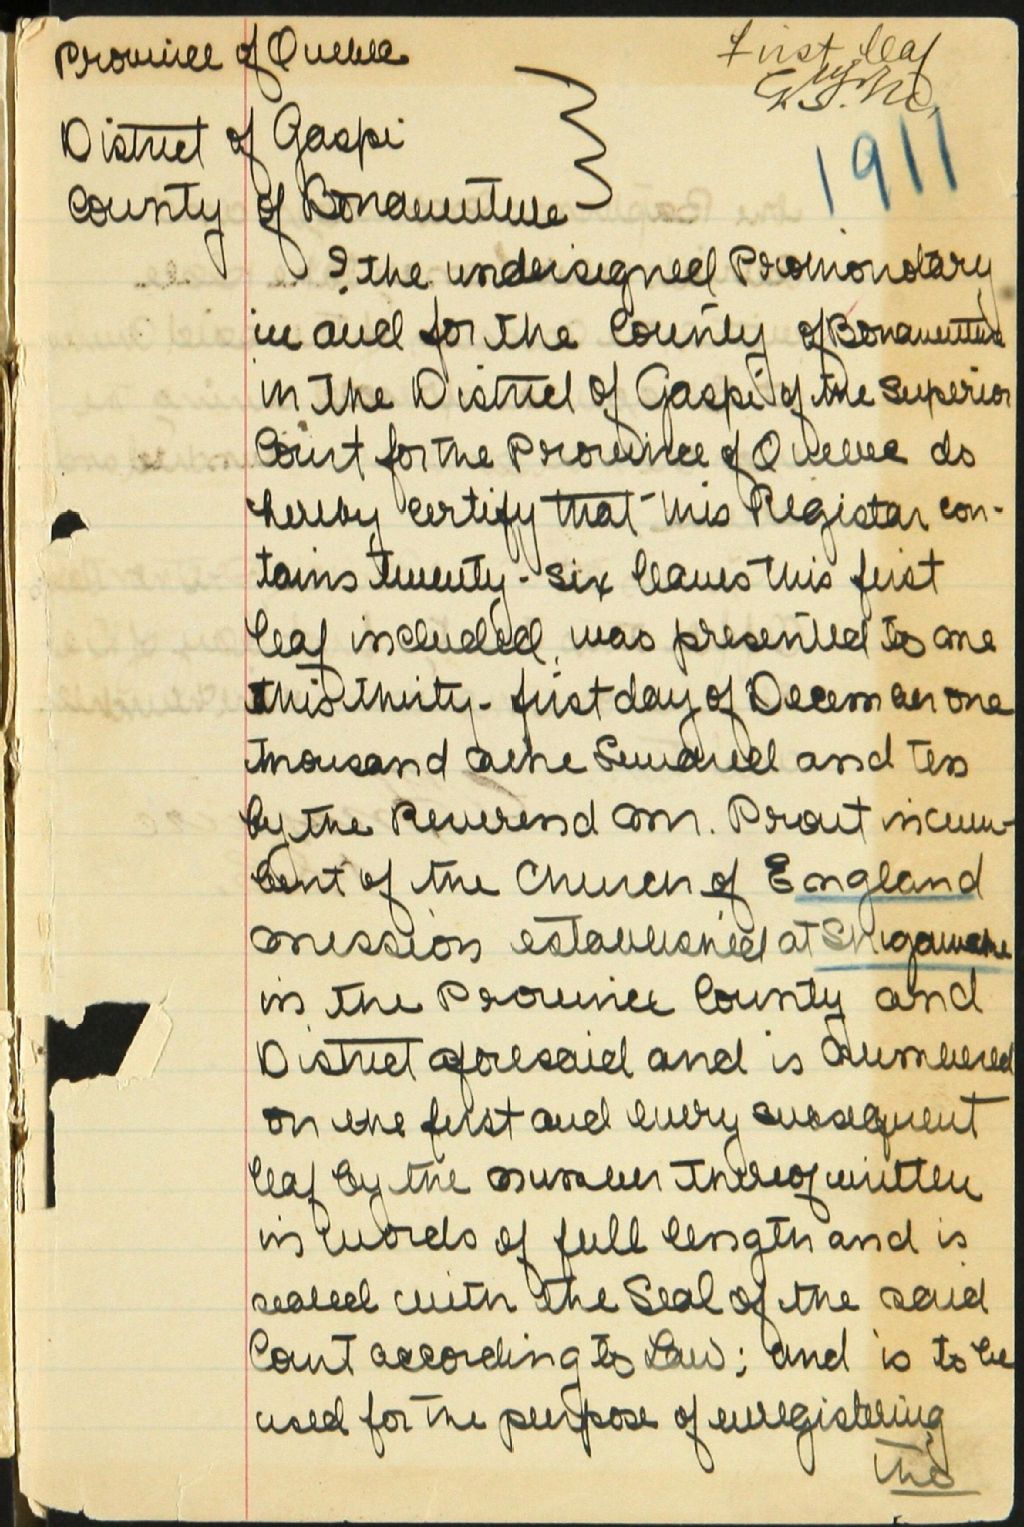 Province of Quebec
First leaf
1911
District of Gaspé
County of Bonaventure
I the undersigned Prothonotary
in and for the County of Bonaventure
in the District of Gaspé of the Superior
Court for the Province of Quebec do
hereby certify that this Registar con-
tains twenty-six leaves this first
leaf included, was presented to me
this thirty-first day of December one
thousand nine hundred and ten
by the Reverend Mr. Prout incum-
bent of the Church of England
mission established at Shigawake
in the Province County and
District aforesaid and is numbered
on the first and every subsequent
leaf by the number thereof written
in words of full length and is
sealed with the Seal of the said
Court according to Law; and is to be
used for the purpose of enregistering
the